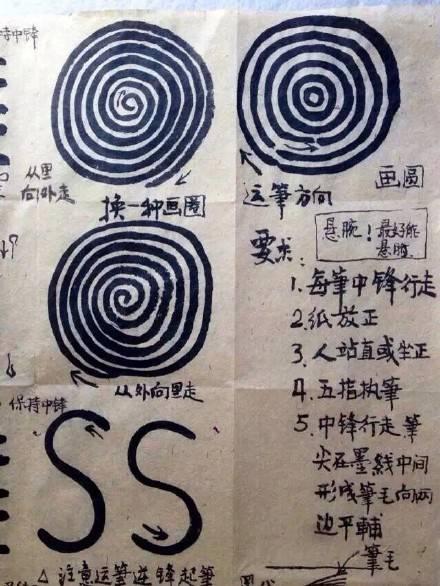 持中锋
从里
向外走
换一种画圈
运筆方向
画圓
悬腕！最好能
悬肘
要求：
1. 每筆中锋行走
2. 纸放正
3. 人站直或坐正
4. 五指执筆
5. 中锋行走筆
尖在墨线中间
形成筆毛向两
边平鋪
从外向里走
保持中锋
S S
△ 注意运筆逆锋起筆
筆毛